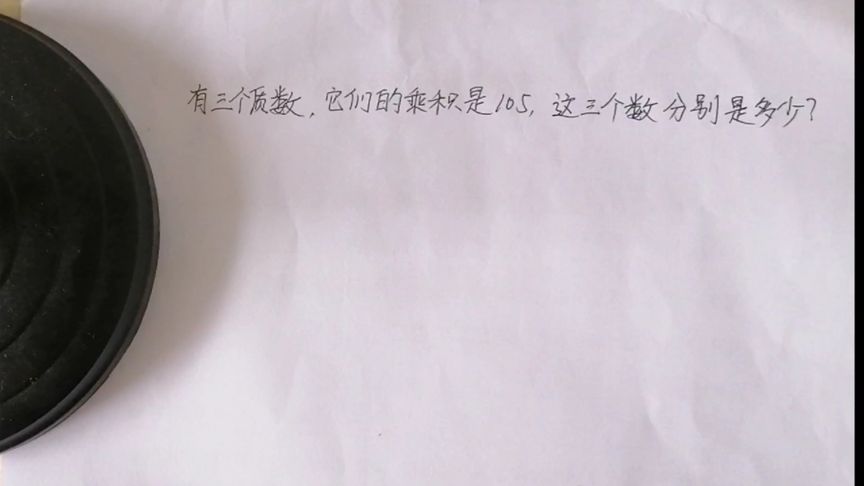 有三个质数，它们的乘积是105，这三个数分别是多少？